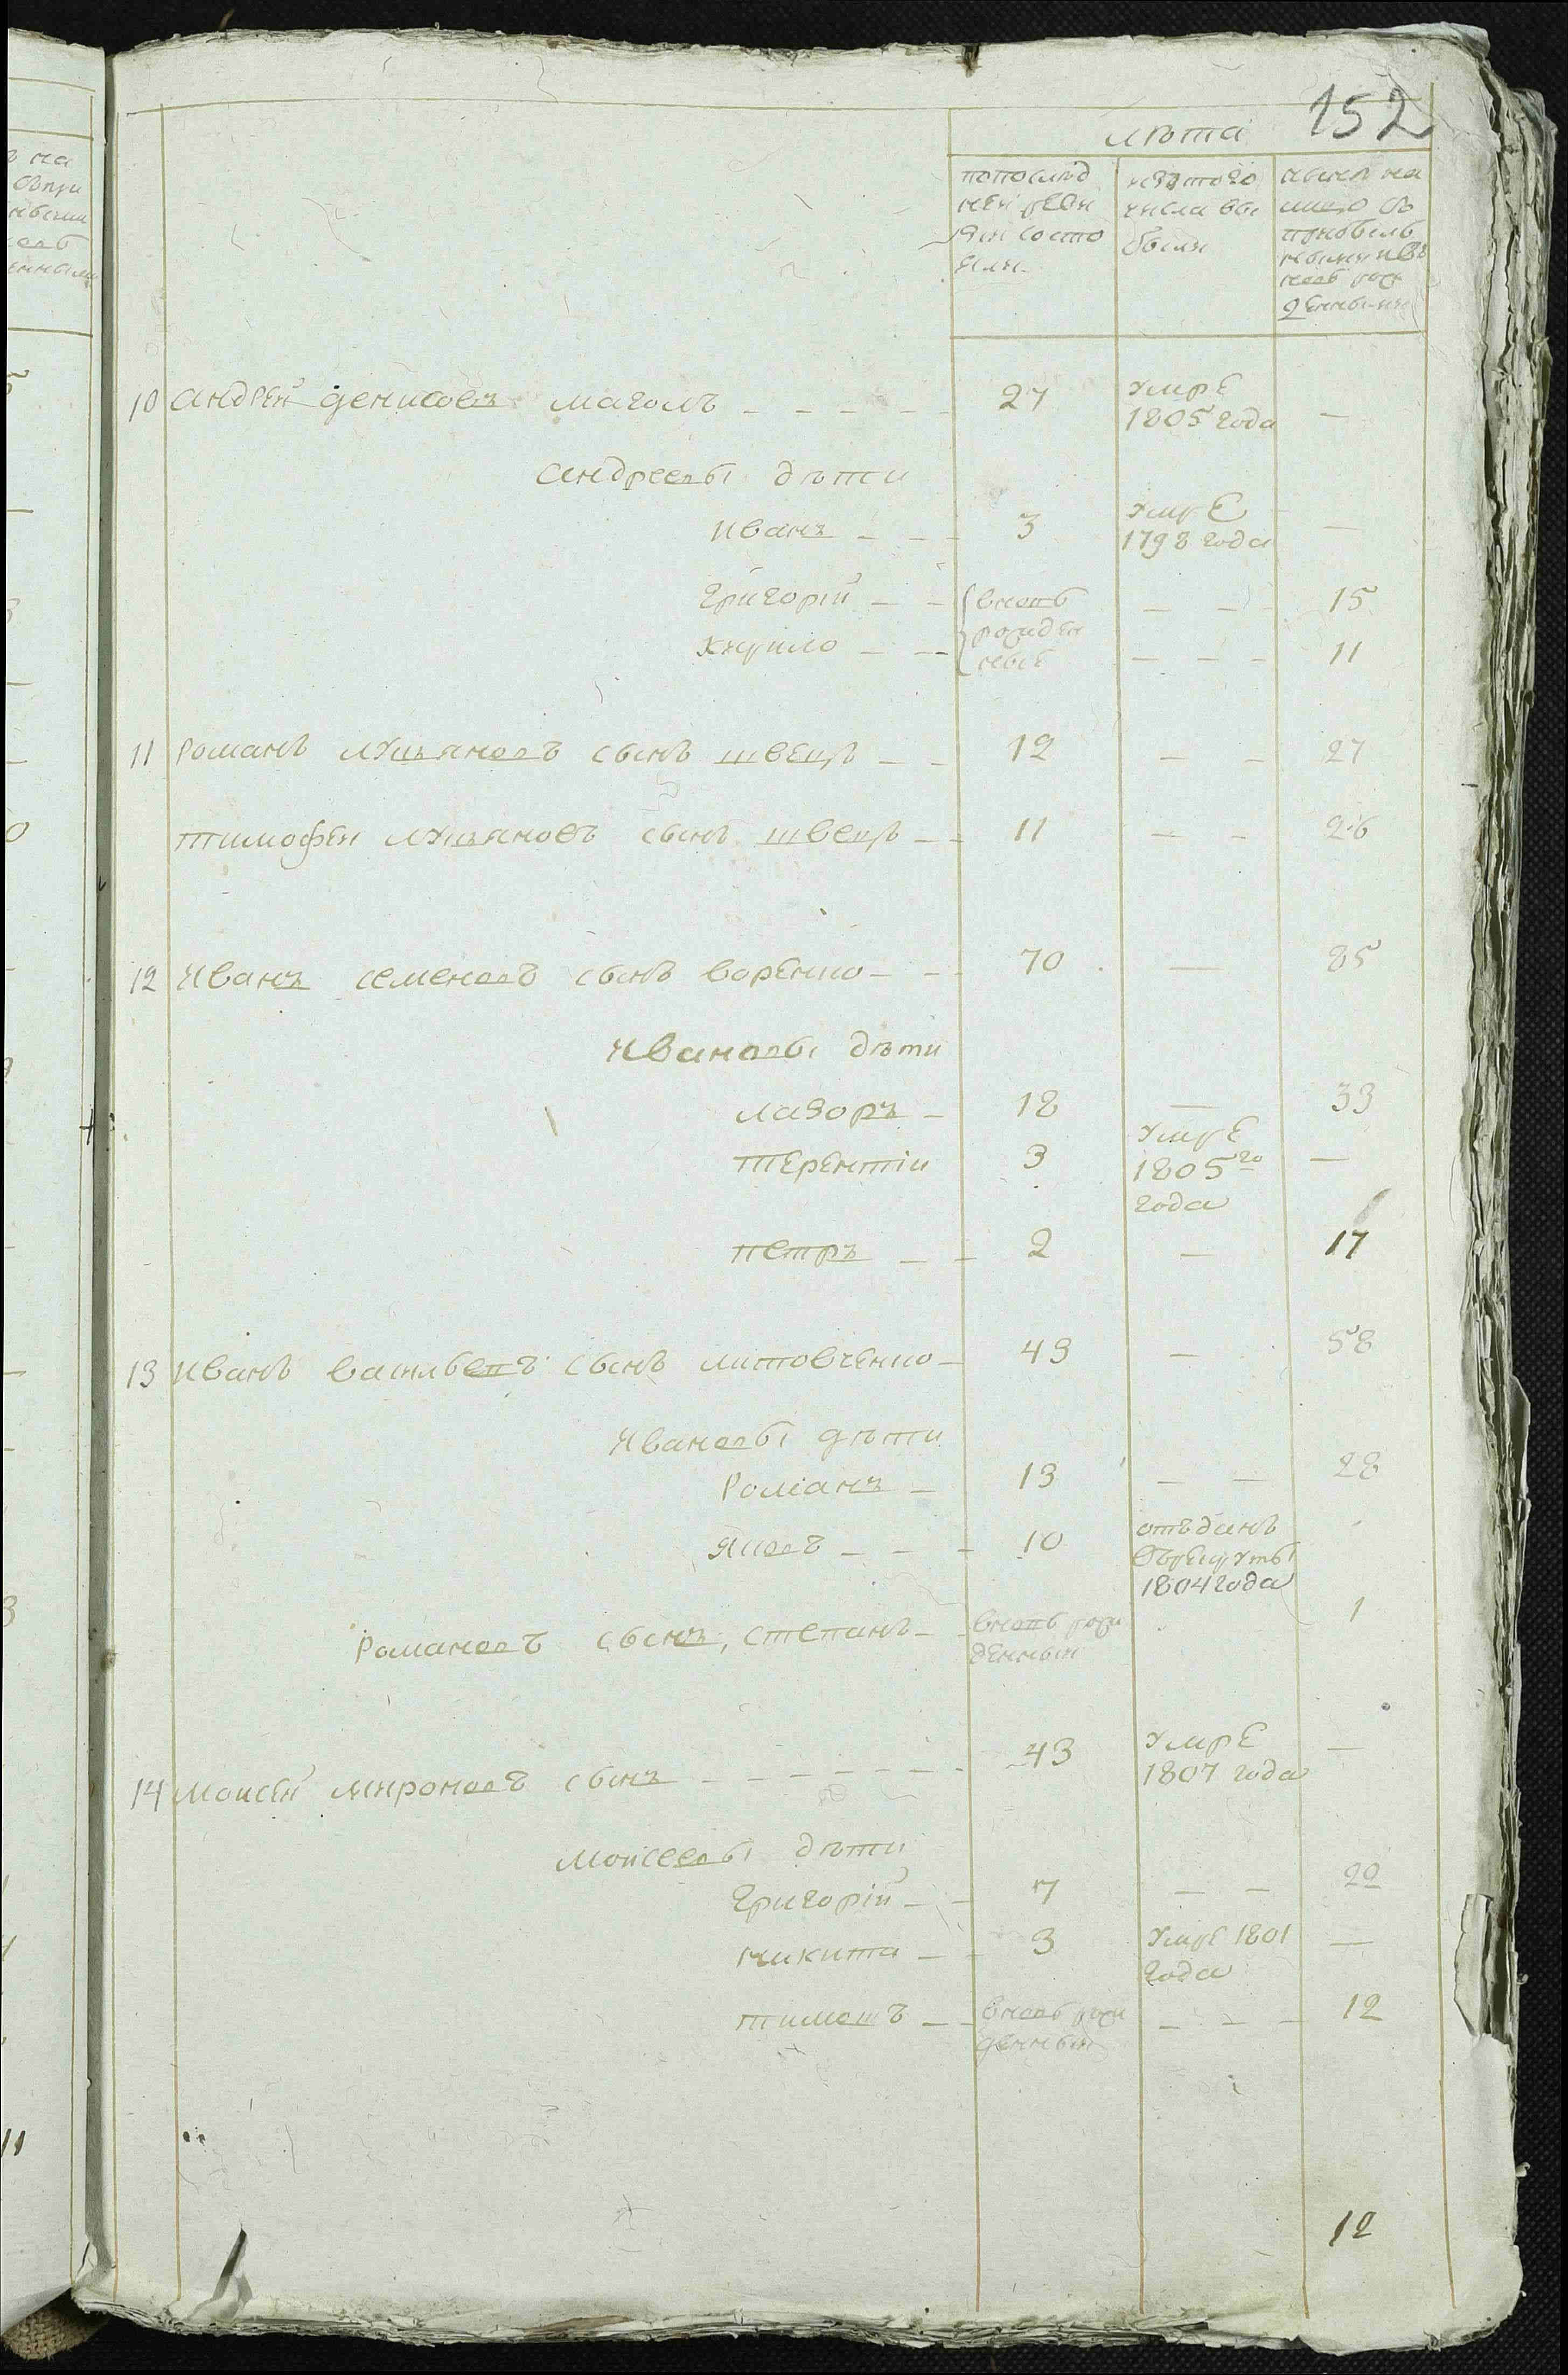 152
лѣта
попослѣд
ней реви
зіи состо
яли.
изтого
числа вы
были
нынѣ на
лицо съ
прибыль
ными ивъ
новь рож
денными
10 Андрей денисовъ маголъ 27 умре 1805 года —
Андреевы дѣти
иванъ 3 умре 1798 года —
григорій вновь 15
кирило рожден 11
ные
11 Романъ лукьяновъ сынъ швецъ 12 — 27
тимофей лукьяновъ сынъ швецъ 11 — 26
12 Иванъ семеновъ сынъ воренко 70 — 85
Ивановы дѣти
лазоръ 18 — 33
терентіи 3 умре 1805го года —
петръ 2 — 17
13 Иванъ васильевъ сынъ литовченко 43 — 58
Ивановы дѣти
Романъ 13 — 28
яковъ 10 отъданъ
върекруты
1804 года
Романовъ сынъ, степанъ вновь рож 1
денный
14 Моисей мироновъ сынъ 43 умре 1807 года —
Моисеевы дѣти
григорій 7 — 22
никита 3 умре 1801 года —
тимошъ вновь рож 12
денный
12